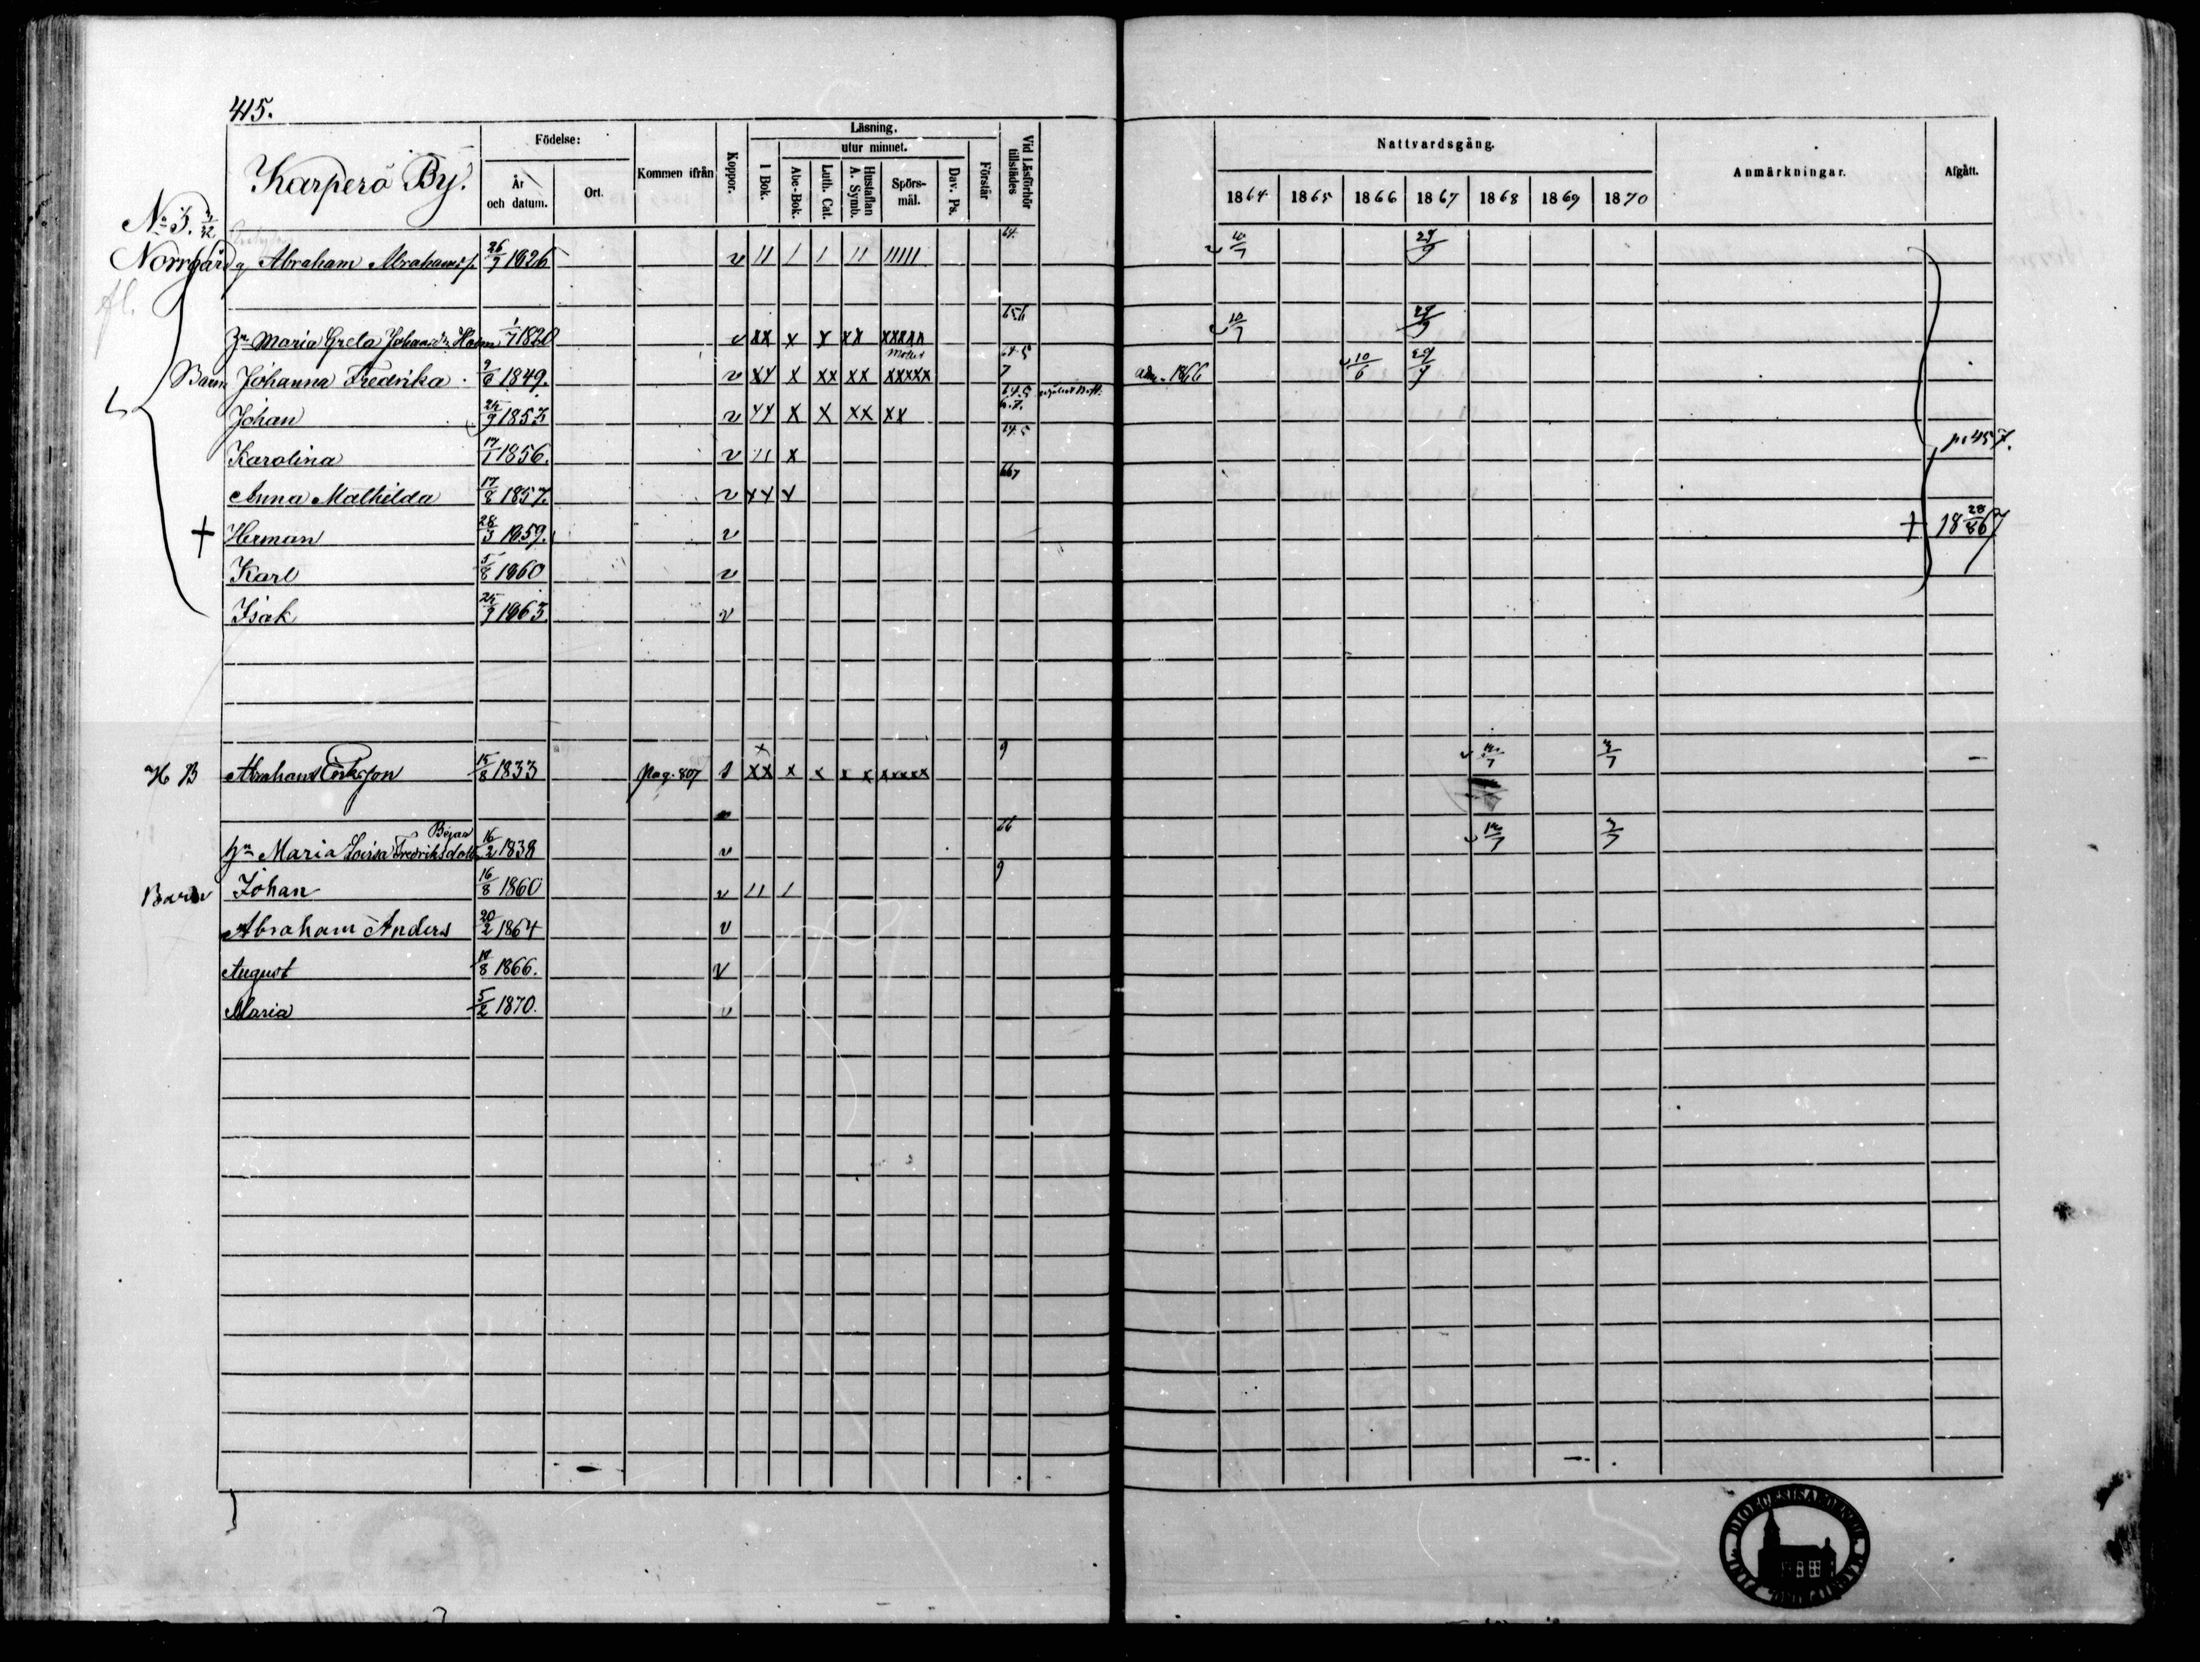 415.
Karperö By.
Födelse:
År och datum.
Ort.
Kommen ifrån
Koppor.
Läsning.
utur minnet.
I Bok.
Abc-Bok.
Luth. Cat.
Hustaflan A. Symb.
Spörs-mål.
Dav. Ps.
Förstår
Vid Läsförhör tillstädes
Nattvardsgång.
1864 1865 1866 1867 1868 1869 1870
Anmärkningar.
Afgått.
No 3.
Norrgård
Abraham Abrahamss. 26/9 1826 v 11 1 1 11 11111 64. 10/7 29/9
Hu Maria Greta Johansdr 1/7 1820 v xx x x xx xxxxx 656 10/7 29/9
Barn Johanna Fredrika. 9/6 1849. v xx x xx xx xxxxx 64.5 7 adm. 1866 10/6 29/9
Johan 25/9 1853 v xx x x xx xx 64.5 6.7.
Karolina 17/1 1856. v 11 x 64.5 p. 457.
Anna Mathilda 17/8 1857. v xx x 667
+ Herman 28/3 1859. v + 18 28/8 67
Karl 5/8 1860 v
Isak 25/9 1863 v
H B Abraham Eriksson 15/8 1833 pag. 807 s xx x x x x xxxxx 9 12/7 3/7 -
Böjar
Hu Maria Lovisa Fredriksdott. 16/2 1838 v 66 12/7 3/7
Barn Johan 16/8 1860 v 11 1 9
Abraham Anders 20/2 1864 v
August 18/8 1866. v
Maria 5/2 1870. v